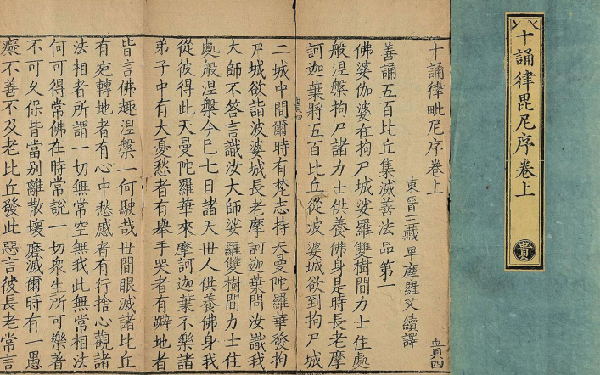 十誦律毘尼序卷上
十誦律毗尼序卷上
東晉三藏卑摩羅叉續譯
善誦五百比丘集滅善法品第一
佛婆伽婆在拘尸城娑羅雙樹間力士住處
般涅槃拘尸諸力士供養佛身是時長老摩
訶迦葉將五百比丘從波婆城欲到拘尸城
二城中間爾時有梵志持天曼陀羅華發拘
尸城欲詣波婆城長老摩訶迦葉問汝識我
大師不答言識汝大師娑羅雙樹間力士住
處般涅槃今已七日諸天世人供養佛身我
從彼得此天曼陀羅華來摩訶迦葉不樂諸
弟子中有大憂愁者有舉手哭者有躃地者
皆言佛趣涅槃一何駛哉世間眼滅諸比丘
有宛轉地者有心中愁慼者有行捨心觀諸
法相者所謂一切無常空無我此無常相法
何可得常佛在時常說一切衆生所可樂著
不可久保皆當別離散壞磨滅爾時有一愚
癡不善不及老比丘發此惡言彼長老常言